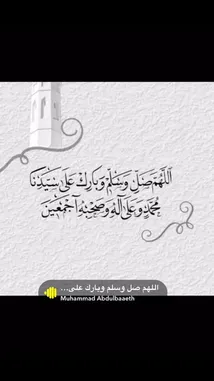 اللهم صل وسلم وبارك على سيدنا
محمد وعلى آله وصحبه أجمعين
اللهم صل وسلم وبارك على...
Muhammad Abdulbaaeth